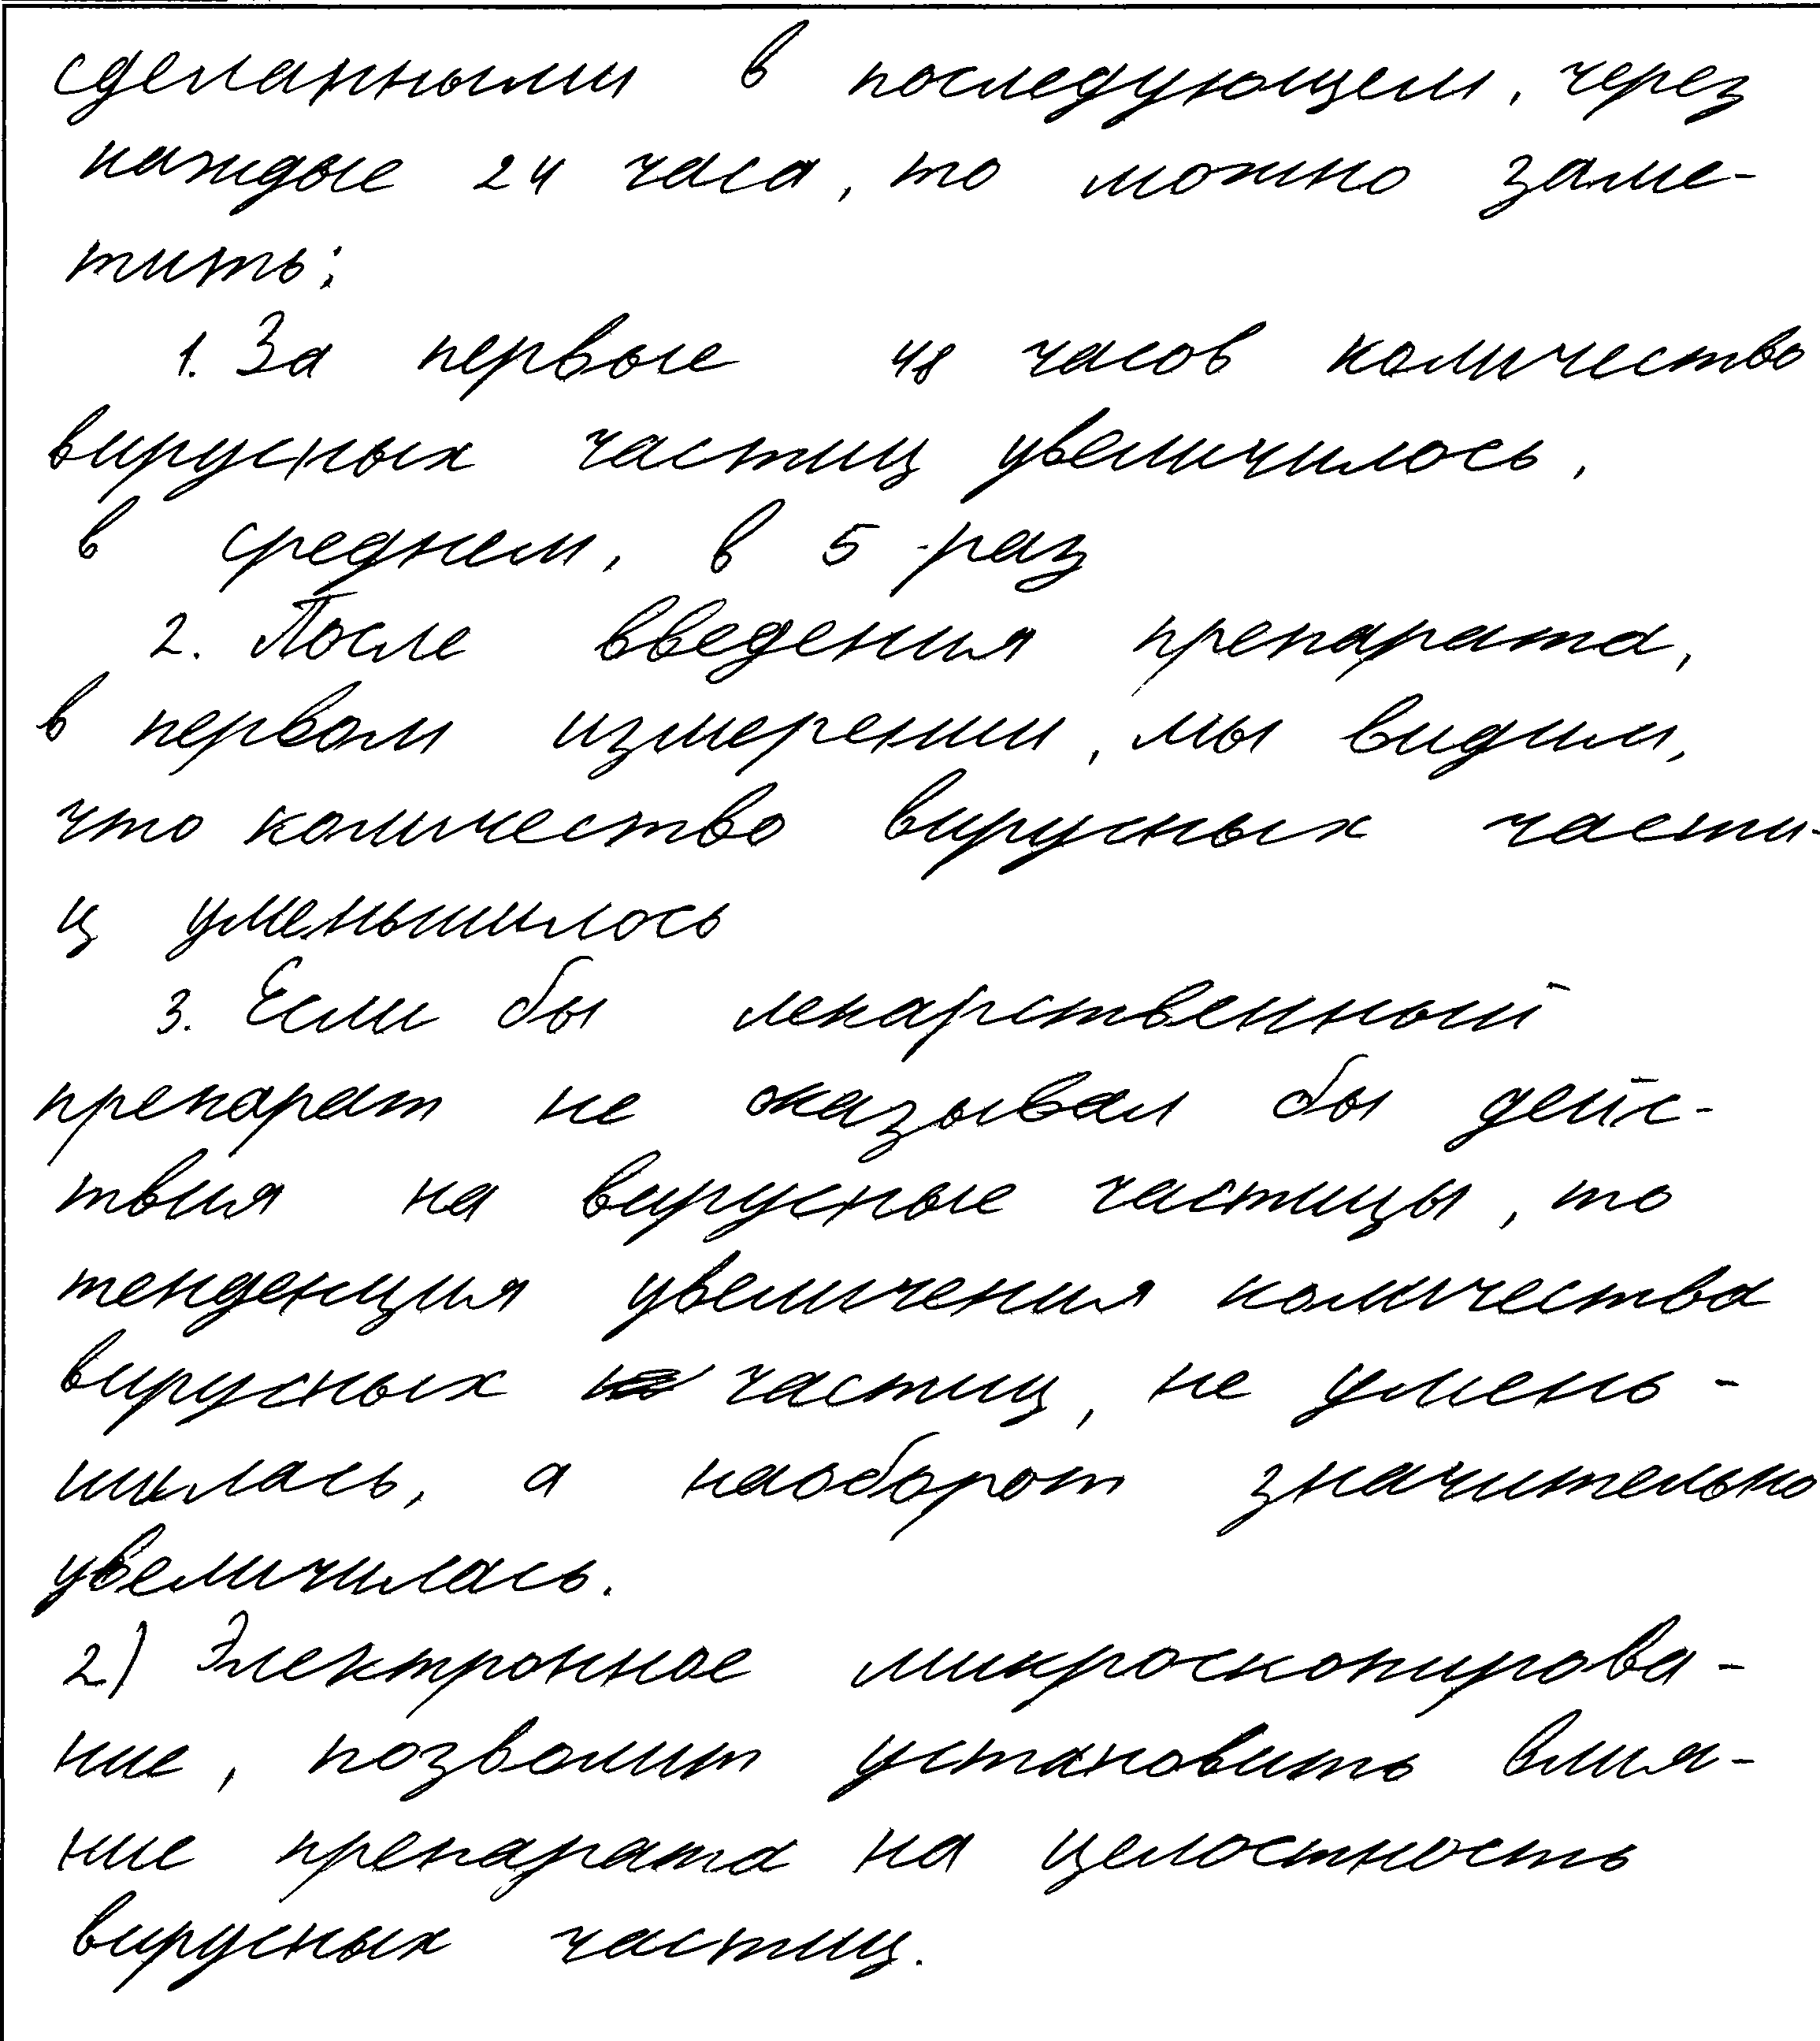 сделанными в последующем, через
каждые 24 часа, то можно заме-
тить:
1. За первые 48 часов количество
вирусных частиц увеличилось,
в среднем, в 5 раз
2. После введения препарата,
в первом измерении, мы видим,
что количество вирусных части-
ц уменьшилось
3. Если бы лекарственный
препарат не оказывал бы дейс-
твия на вирусные частицы, то
тенденция увеличения количества
вирусных частиц, не умень-
шилась, а наоборот значительно
увеличилась.
2) Электронное микроскопирова-
ние, позволит установить влия-
ние препарата на целостность
вирусных частиц.